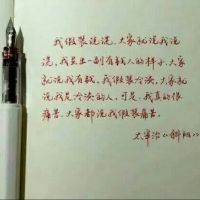 我假装说谎,大家就说我说
谎,我显出一副有钱人的样子,大家
就说我有钱,我假装冷淡,大家就
说我是冷淡的人,可是,我真的很
痛苦,大家都说我假装痛苦。
太宰治《斜阳》